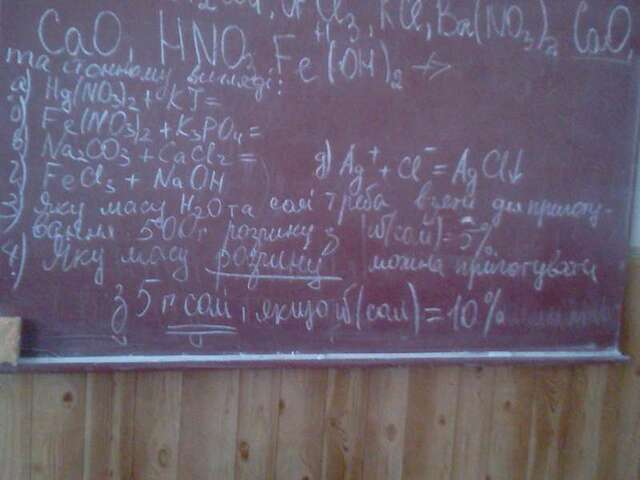 KCl, Ba(NO₃)₂ CaO,
CaO, HNO₃ Fe(OH)₂ →
та йонному вигляді:
а) Hg(NO₃)₂ + KI =
б) Fe(NO₃)₂ + K₃PO₄ =
в) Na₂CO₃ + CaCl₂ =
г) FeCl₃ + NaOH
д) Ag⁺ + Cl⁻ = AgCl↓
3) Яку масу H₂O та солі треба взяти для приготу-
вання 500г розчину з W(солі) = 5%.
4) Яку масу розчину можна приготувати
з 5г солі, якщо W(солі) = 10%